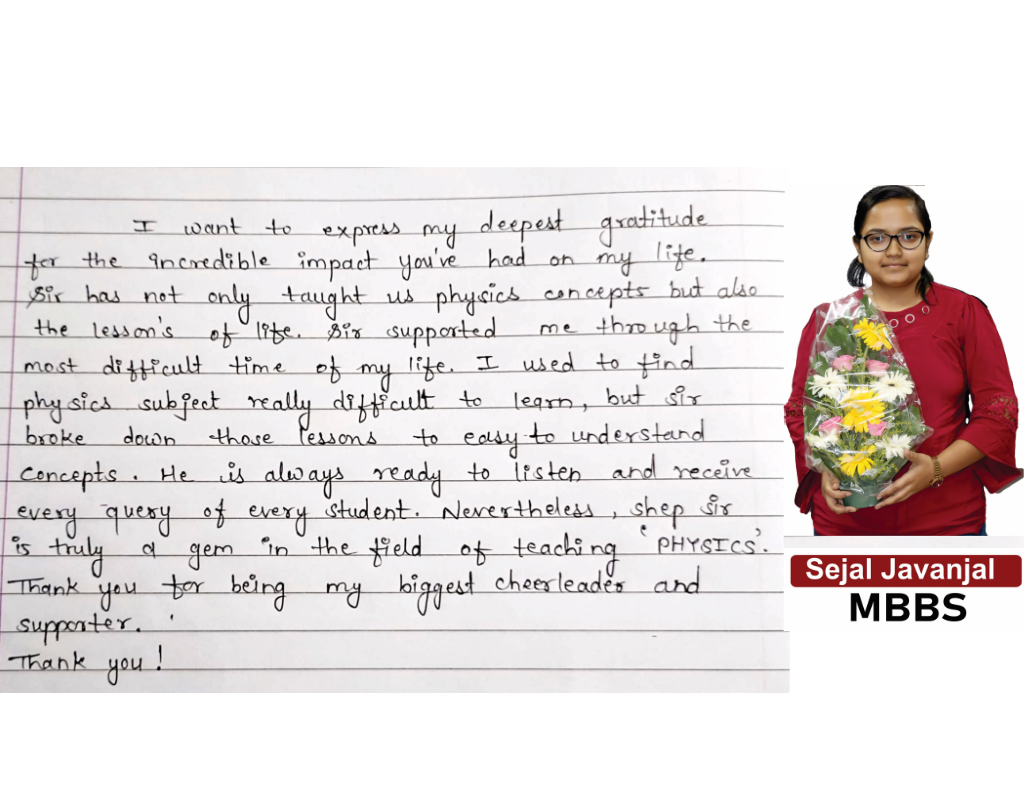 I want to express my deepest gratitude
for the incredible impact you've had on my life.
Sir has not only taught us physics concepts but also
the lesson's of life. Sir supported me through the
most difficult time of my life. I used to find
physics subject really difficult to learn, but sir
broke down those lessons to easy-to understand
concepts. He is always ready to listen and receive
every query of every student. Nevertheless, shep sir
is truly a gem in the field of teaching 'PHYSICS'.
Thank you for being my biggest cheerleader and
supporter.
Thank you!
Sejal Javanjal
MBBS